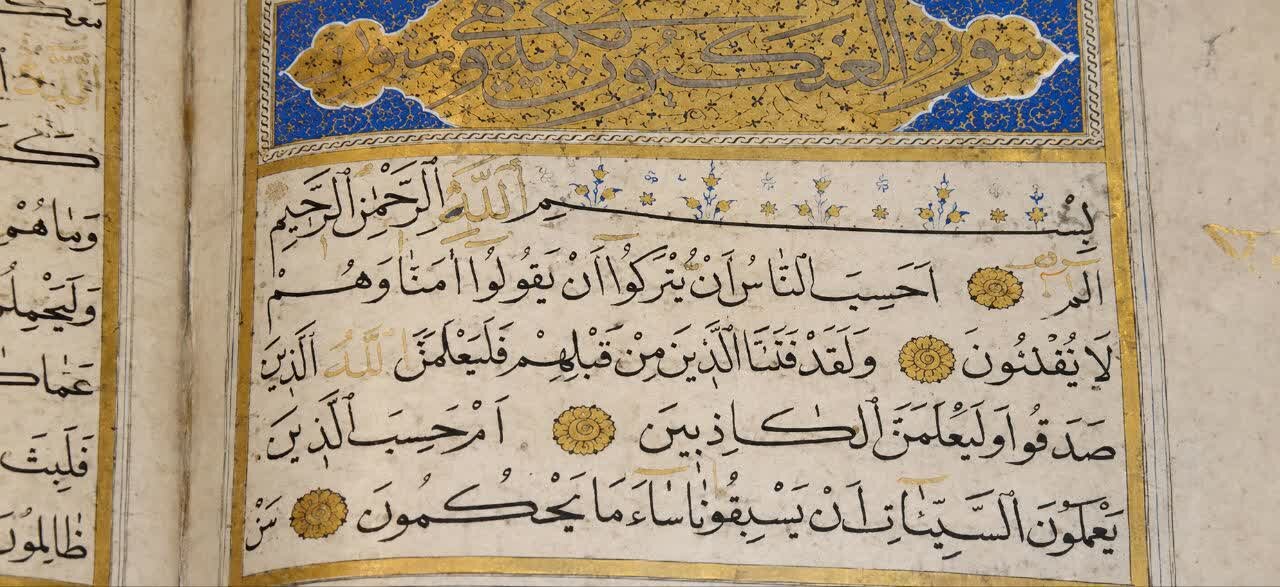 سورة العنكبوت
بِسْمِ اللَّهِ الرَّحْمٰنِ الرَّحِيمِ
الم اَحَسِبَ النَّاسُ اَنْ يُتْرَكُوا اَنْ يَقُولُوا اٰمَنَّا وَهُمْ
لَا يُفْتَنُونَ وَلَقَدْ فَتَنَّا الَّذِينَ مِنْ قَبْلِهِمْ فَلَيَعْلَمَنَّ اللَّهُ الَّذِينَ
صَدَقُوا وَلَيَعْلَمَنَّ الْكَاذِبِينَ اَمْ حَسِبَ الَّذِينَ
يَعْمَلُونَ السَّيِّئَاتِ اَنْ يَسْبِقُونَا سَاءَ مَا يَحْكُمُونَ مَنْ
وَمَا هُمْ
فَلَبِثَ
ظَالِمُونَ